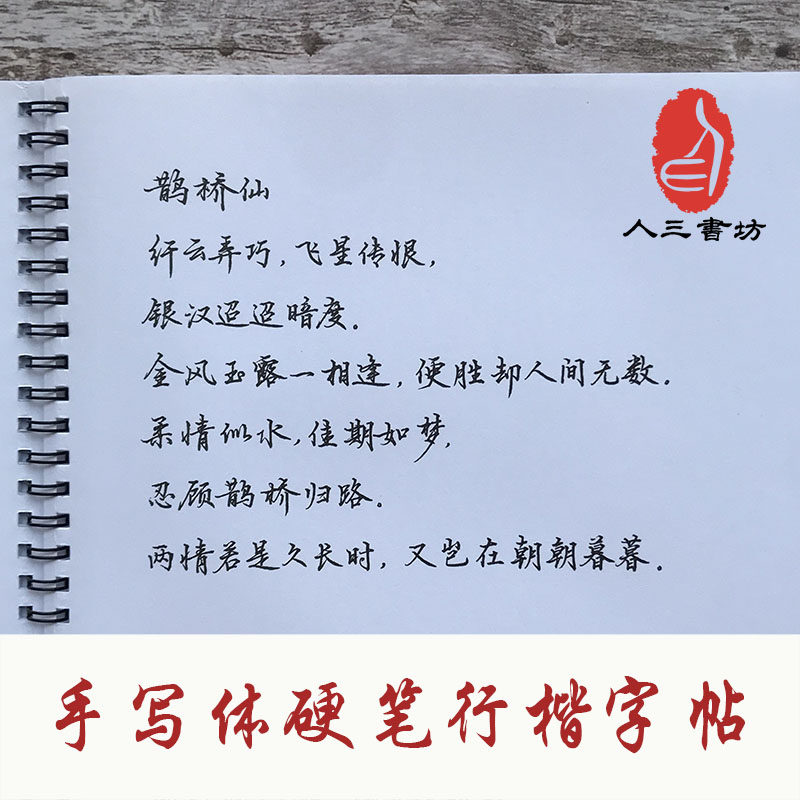 鹊桥仙
纤云弄巧，飞星传恨，
银汉迢迢暗度．
金风玉露一相逢，便胜却人间无数．
柔情似水，佳期如梦，
忍顾鹊桥归路．
两情若是久长时，又岂在朝朝暮暮．
人三書坊
手写体硬笔行楷字帖